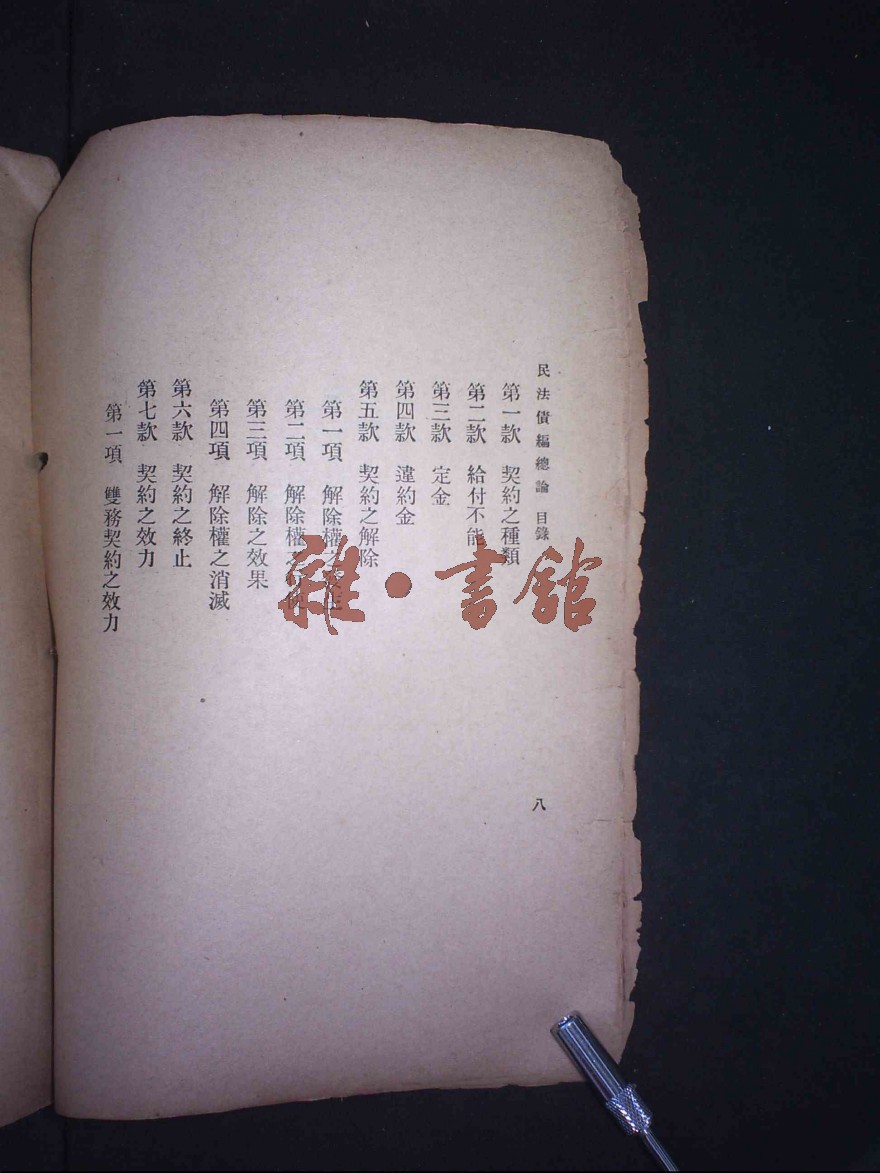 民法債編總論 目錄
八
第一款 契約之種類
第二款 給付不能
第三款 定金
第四款 違約金
第五款 契約之解除
第一項 解除權之
第二項 解除權
第三項 解除之效果
第四項 解除權之消滅
第六款 契約之終止
第七款 契約之效力
第一項 雙務契約之效力
雜·書館